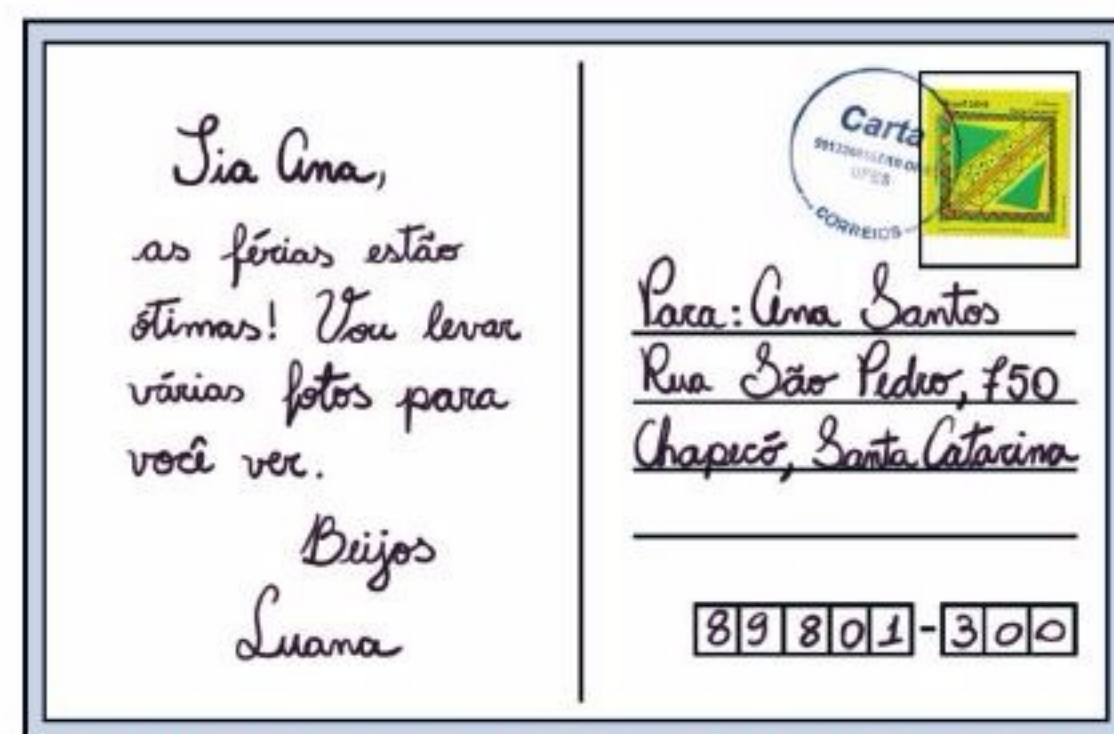 Tia Ana,
as férias estão
ótimas! Vou levar
várias fotos para
você ver.
Beijos
Luana
Carta
CORREIOS
Para: Ana Santos
Rua São Pedro, 750
Chapecó, Santa Catarina
89801-300